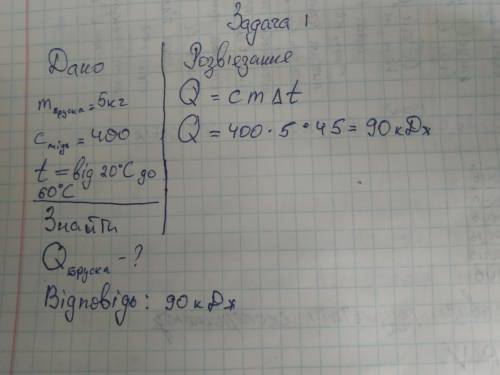 Задача 1
Дано
m бруска = 5кг
c мідь = 400
t = від 20°C до
60°C
Знайти
Q бруска - ?
Розв'язання
Q = c m Δt
Q = 400 · 5 · 45 = 90 кДж
Відповідь: 90 кДж